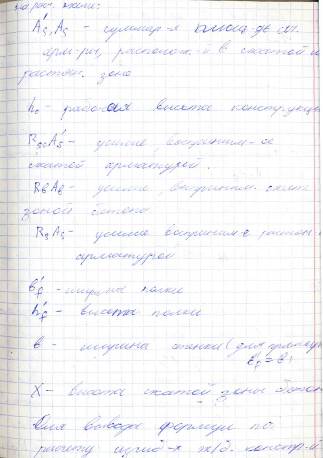 A's, As - суммар-я площ-дь сеч.
арм-ры, располож-й в сжатой и
растян. зоне
h₀ - рабочая высота конструкции
RscA's - усилие восприним-ое
сжатой арматурой.
RbAb - усилие, восприним. сжат.
зоной бетона
RsAs - усилие восприним-е растян.
арматурой
b'f - ширина полки
h'f - высота полки
в - ширина стенки (для прямоуг
X - высота сжатой зоны бетон
Для вывода формул по
расчету изгиб-х ж/б. констр-й